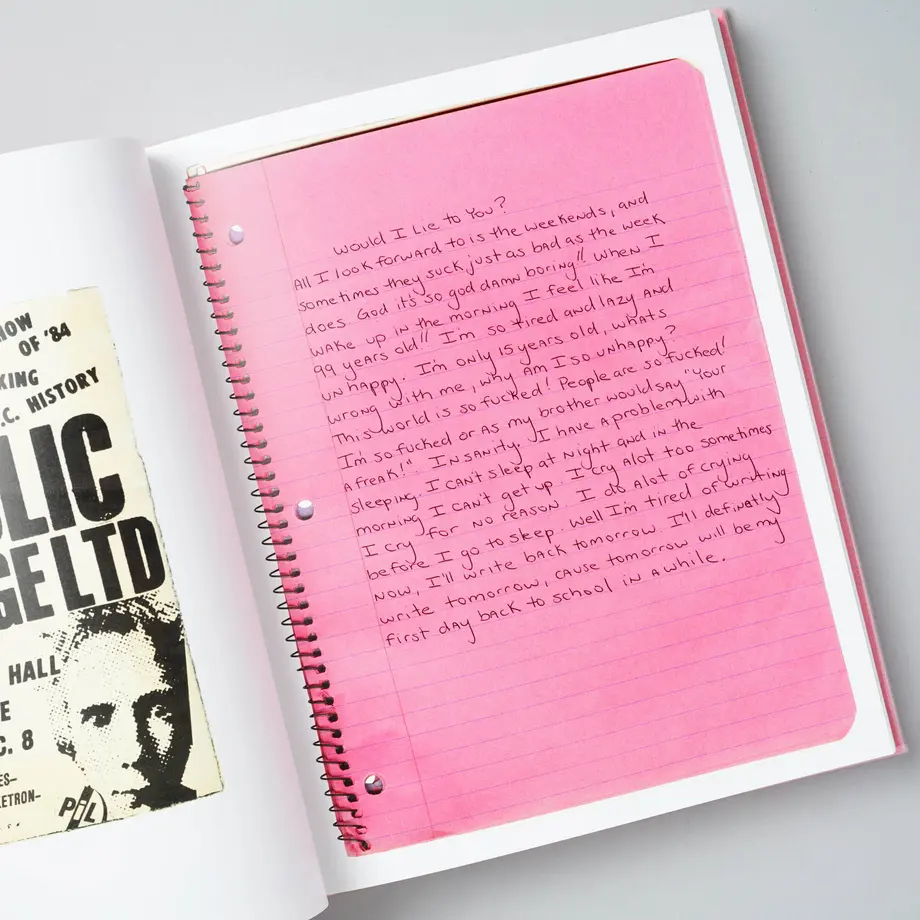 HOW
OF '84
KING
.C. HISTORY
LIC
GE LTD
HALL
E
C. 8
ES–
LETRON–
PiL
Would I Lie to You?
All I look forward to is the weekends, and
sometimes they suck just as bad as the week
does. God it's so god damn boring!! When I
wake up in the morning I feel like I'm
99 years old!! I'm so tired and lazy and
unhappy. I'm only 15 years old, whats
wrong with me, why am I so unhappy?
This world is so fucked! People are so fucked!
I'm so fucked or as my brother would say "Your
a freak!" Insanity. I have a problem with
sleeping. I can't sleep at night and in the
morning I can't get up. I cry alot too sometimes
I cry for no reason. I do alot of crying
before I go to sleep. Well I'm tired of writing
now, I'll write back tomorrow. I'll definatly
write tomorrow, cause tomorrow will be my
first day back to school in a while.